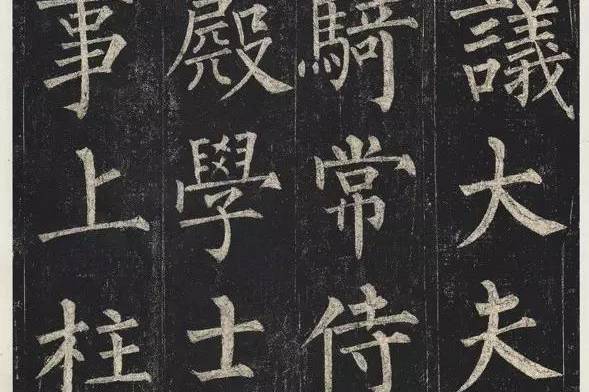 議大夫
騎常侍
殿學士
事上柱